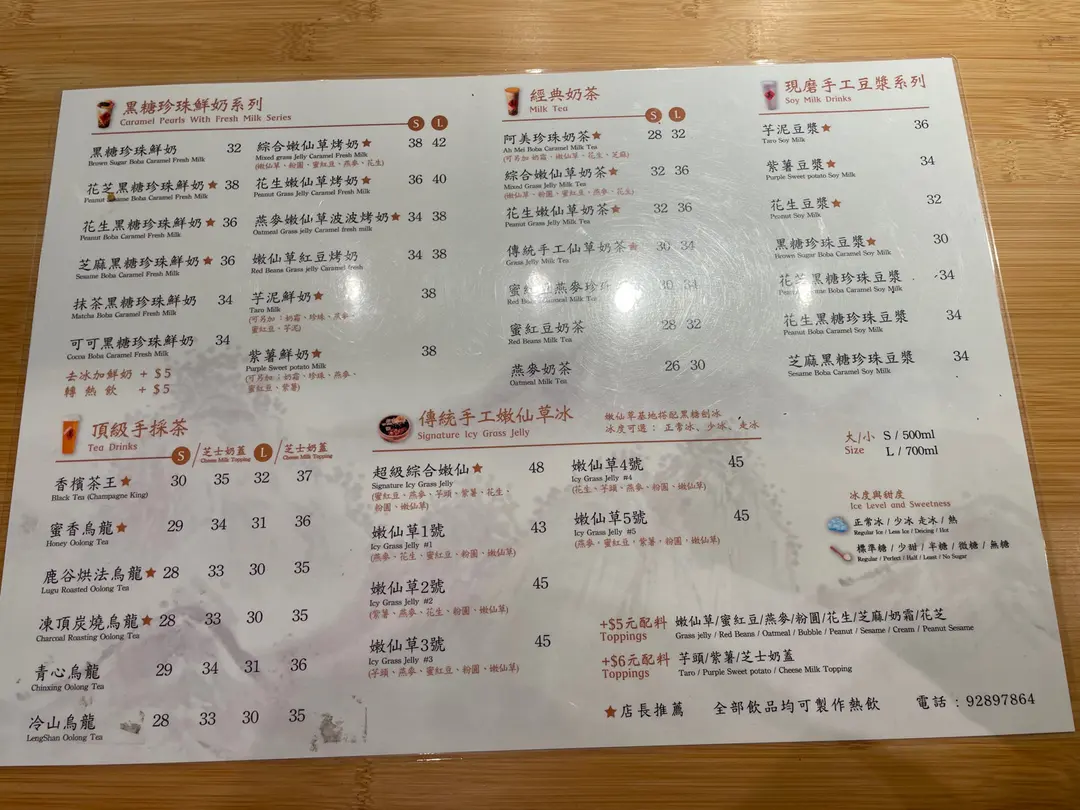 黑糖珍珠鮮奶系列
Caramel Pearls With Fresh Milk Series
S L
黑糖珍珠鮮奶 32
Brown Sugar Boba Caramel Fresh Milk
花芝黑糖珍珠鮮奶★ 38
Peanut Sesame Boba Caramel Fresh Milk
花生黑糖珍珠鮮奶★ 36
Peanut Boba Caramel Fresh Milk
芝麻黑糖珍珠鮮奶★ 36
Sesame Boba Caramel Fresh Milk
抹茶黑糖珍珠鮮奶 34
Matcha Boba Caramel Fresh Milk
可可黑糖珍珠鮮奶 34
Cocoa Boba Caramel Fresh Milk
去冰加鮮奶 + $5
轉熱飲 + $5
綜合嫩仙草烤奶★ 38 42
Mixed grass Jelly Caramel Fresh Milk
(嫩仙草、粉圓、蜜紅豆、燕麥、花生)
花生嫩仙草烤奶★ 36 40
Peanut Grass Jelly Caramel Fresh Milk
燕麥嫩仙草波波烤奶★ 34 38
Oatmeal Grass jelly Caramel fresh milk
嫩仙草紅豆烤奶 34 38
Red Beans Grass jelly Caramel fresh
芋泥鮮奶★ 38
Taro Milk
(可另加：奶霜、珍珠、燕麥、
蜜紅豆、芋泥)
紫薯鮮奶★ 38
Purple Sweet potato Milk
(可另加：奶霜、珍珠、燕麥、
蜜紅豆、紫薯)
經典奶茶
Milk Tea
S L
阿美珍珠奶茶★ 28 32
Ah Mei Boba Caramel Milk Tea
(可另加 奶霜、嫩仙草、花生、芝麻)
綜合嫩仙草奶茶★ 32 36
Mixed Grass Jelly Milk Tea
(嫩仙草、粉圓、蜜紅豆、燕麥、花生)
花生嫩仙草奶茶★ 32 36
Peanut Grass Jelly Milk Tea
傳統手工仙草奶茶★ 30 34
Grass Jelly Milk Tea
蜜紅豆燕麥珍珠 30 34
Red Beans Oatmeal Milk Tea
蜜紅豆奶茶 28 32
Red Beans Milk Tea
燕麥奶茶 26 30
Oatmeal Milk Tea
現磨手工豆漿系列
Soy Milk Drinks
芋泥豆漿★ 36
Taro Soy Milk
紫薯豆漿★ 34
Purple Sweet potato Soy Milk
花生豆漿★ 32
Peanut Soy Milk
黑糖珍珠豆漿★ 30
Brown Sugar Boba Caramel Soy Milk
花芝黑糖珍珠豆漿 34
Peanut Sesame Boba Caramel Soy Milk
花生黑糖珍珠豆漿 34
Peanut Boba Caramel Soy Milk
芝麻黑糖珍珠豆漿 34
Sesame Boba Caramel Soy Milk
頂級手採茶
Tea Drinks
S /芝士奶蓋 L /芝士奶蓋
Cheese Milk Topping Cheese Milk Topping
香檳茶王★ 30 35 32 37
Black Tea (Champagne King)
蜜香烏龍★ 29 34 31 36
Honey Oolong Tea
鹿谷烘法烏龍★ 28 33 30 35
Lugu Roasted Oolong Tea
凍頂炭燒烏龍★ 28 33 30 35
Charcoal Roasting Oolong Tea
青心烏龍 29 34 31 36
Chinxing Oolong Tea
冷山烏龍 28 33 30 35
LengShan Oolong Tea
傳統手工嫩仙草冰
Signature Icy Grass Jelly
嫩仙草基地搭配黑糖刨冰
冰度可選： 正常冰、少冰、走冰
超級綜合嫩仙★ 48
Signature Icy Grass Jelly
(蜜紅豆、燕麥、芋頭、紫薯、花生、
粉圓、嫩仙草)
嫩仙草1號 43
Icy Grass Jelly #1
(燕麥、花生、蜜紅豆、粉圓、嫩仙草)
嫩仙草2號 45
Icy Grass Jelly #2
(紫薯、燕麥、花生、粉圓、嫩仙草)
嫩仙草3號 45
Icy Grass Jelly #3
(芋頭、燕麥、蜜紅豆、粉圓、嫩仙草)
嫩仙草4號 45
Icy Grass Jelly #4
(花生、芋頭、燕麥、粉圓、嫩仙草)
嫩仙草5號 45
Icy Grass Jelly #5
(燕麥，蜜紅豆，紫薯，粉圓，嫩仙草)
大/小 S / 500ml
Size L / 700ml
冰度與甜度
Ice Level and Sweetness
正常冰 / 少冰 走冰 / 熱
Regular Ice / Less Ice / Deicing / Hot
標準糖 / 少甜 / 半糖 / 微糖 / 無糖
Regular / Perfect / Half / Least / No Sugar
+$5元配料 嫩仙草/蜜紅豆/燕麥/粉圓/花生/芝麻/奶霜/花芝
Toppings Grass jelly / Red Beans / Oatmeal / Bubble / Peanut / Sesame / Cream / Peanut Sesame
+$6元配料 芋頭/紫薯/芝士奶蓋
Toppings Taro / Purple Sweet potato / Cheese Milk Topping
★店長推薦 全部飲品均可製作熱飲 電話：92897864